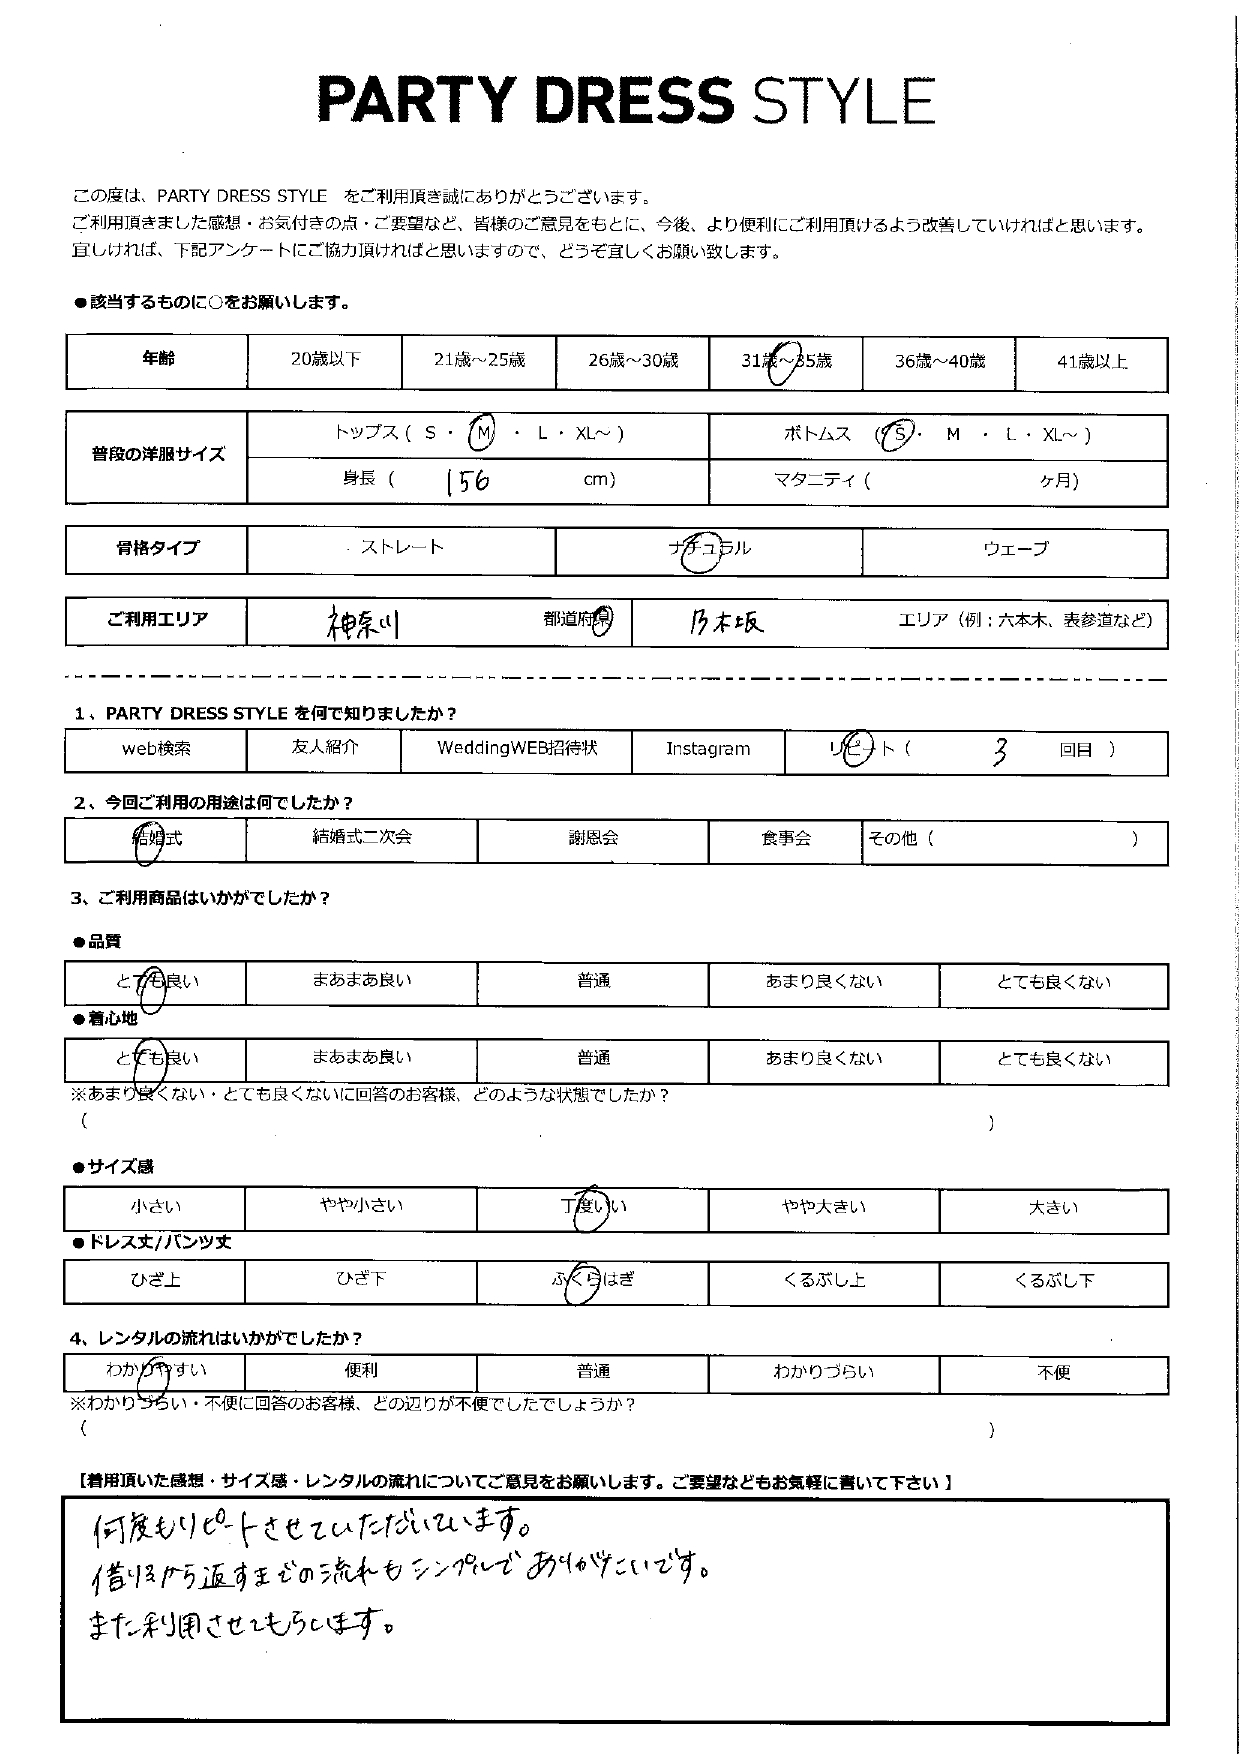 PARTY DRESS STYLE
この度は、PARTY DRESS STYLE をご利用頂き誠にありがとうございます。
ご利用頂きました感想・お気付きの点・ご要望など、皆様のご意見をもとに、今後、より便利にご利用頂けるよう改善していければと思います。
宜しければ、下記アンケートにご協力頂ければと思いますので、どうぞ宜しくお願い致します。
●該当するものに○をお願いします。
年齢 20歳以下 21歳～25歳 26歳～30歳 31歳～35歳 36歳～40歳 41歳以上
普段の洋服サイズ トップス ( S ・ M ・ L ・ XL～ ) ボトムス ( S ・ M ・ L ・ XL～ )
身長 ( 156 cm) マタニティ ( ヶ月)
骨格タイプ ストレート ナチュラル ウェーブ
ご利用エリア 神奈川 都道府県 乃木坂 エリア（例：六本木、表参道など）
1、PARTY DRESS STYLE を何で知りましたか？
web検索 友人紹介 WeddingWEB招待状 Instagram リピート ( 3 回目 )
2、今回ご利用の用途は何でしたか？
結婚式 結婚式二次会 謝恩会 食事会 その他 ( )
3、ご利用商品はいかがでしたか？
●品質
とても良い まあまあ良い 普通 あまり良くない とても良くない
●着心地
とても良い まあまあ良い 普通 あまり良くない とても良くない
※あまり良くない・とても良くないに回答のお客様、どのような状態でしたか？
( )
●サイズ感
小さい やや小さい 丁度いい やや大きい 大きい
●ドレス丈/パンツ丈
ひざ上 ひざ下 ふくらはぎ くるぶし上 くるぶし下
4、レンタルの流れはいかがでしたか？
わかりやすい 便利 普通 わかりづらい 不便
※わかりづらい・不便に回答のお客様、どの辺りが不便でしたでしょうか？
( )
【着用頂いた感想・サイズ感・レンタルの流れについてご意見をお願いします。ご要望などもお気軽に書いて下さい】
何度もリピートさせていただいています。
借りるから返すまでの流れもシンプルでありがたいです。
また利用させてもらいます。